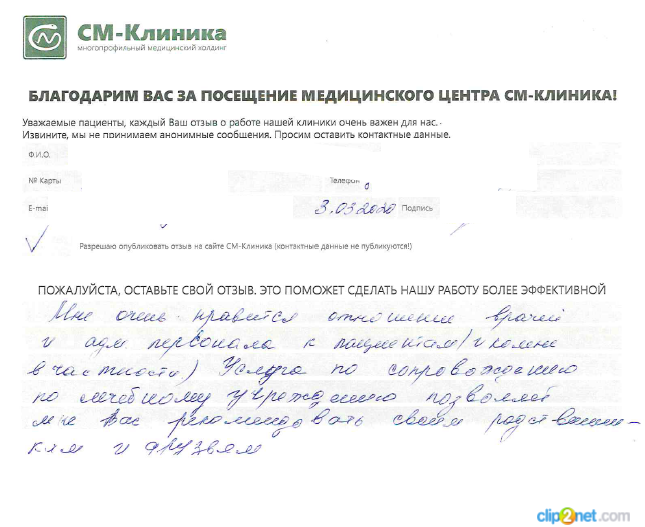 СМ-Клиника
многопрофильный медицинский холдинг
БЛАГОДАРИМ ВАС ЗА ПОСЕЩЕНИЕ МЕДИЦИНСКОГО ЦЕНТРА СМ-КЛИНИКА!
Уважаемые пациенты, каждый Ваш отзыв о работе нашей клиники очень важен для нас.
Извините, мы не принимаем анонимные сообщения. Просим оставить контактные данные.
Ф.И.О.
№ Карты Телефон
E-mai 3.03.2020 Подпись
Разрешаю опубликовать отзыв на сайте СМ-Клиника (контактные данные не публикуются!)
ПОЖАЛУЙСТА, ОСТАВЬТЕ СВОЙ ОТЗЫВ. ЭТО ПОМОЖЕТ СДЕЛАТЬ НАШУ РАБОТУ БОЛЕЕ ЭФФЕКТИВНОЙ
Мне очень нравится отношение врачей
и адм персонала к пациентам (и ко мне
в частности) Услуга по сопровождению
по лечебному учреждению позволяет
мне Вас рекомендовать своим родственни-
кам и друзьям
clip2net.com